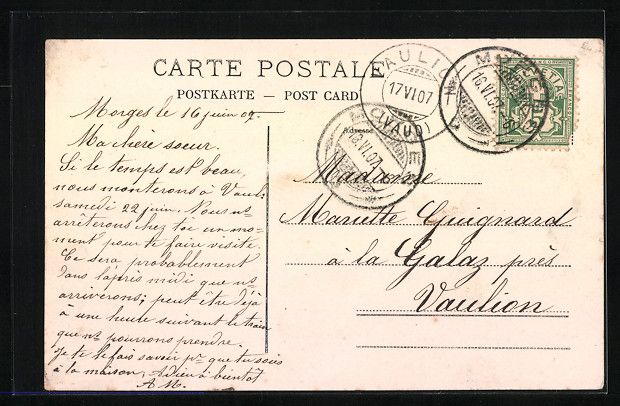 CARTE POSTALE
POSTKARTE — POST CARD
VAULION
17 VI 07
(VAUD)
MORGES
16.VI.07
MORGES
16.VI.07
HELVETIA
5
Adresse
Morges le 16 juin 07.
Ma chère soeur.
Si le temps est beau,
nous monterons à Vaul.
samedi 22 juin. Nous ns
arrêterons chez toi un mo-
ment pour te faire visite.
Ce sera probablement
dans l'après midi que ns
arriverons; peut être déjà
à une heure suivant le train
que ns pourrons prendre.
Je te le fais savoir pr que tu sois
à la maison, Adieu à bientôt
A M.
Madame
Mariette Guignard
à la Galaz près
Vaulion